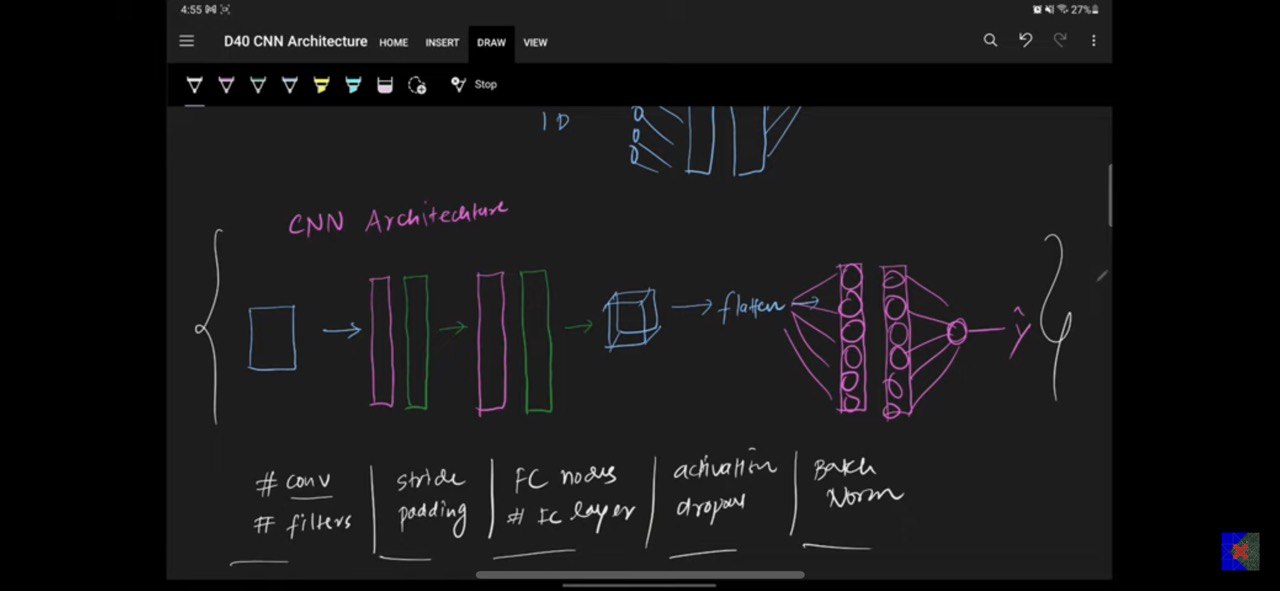 4:55
27%
D40 CNN Architecture HOME INSERT DRAW VIEW
Stop
1D
CNN Architechture
flatten
ŷ
# conv
# filters
stride
padding
FC nodes
# FC layer
activation
dropout
Batch
Norm